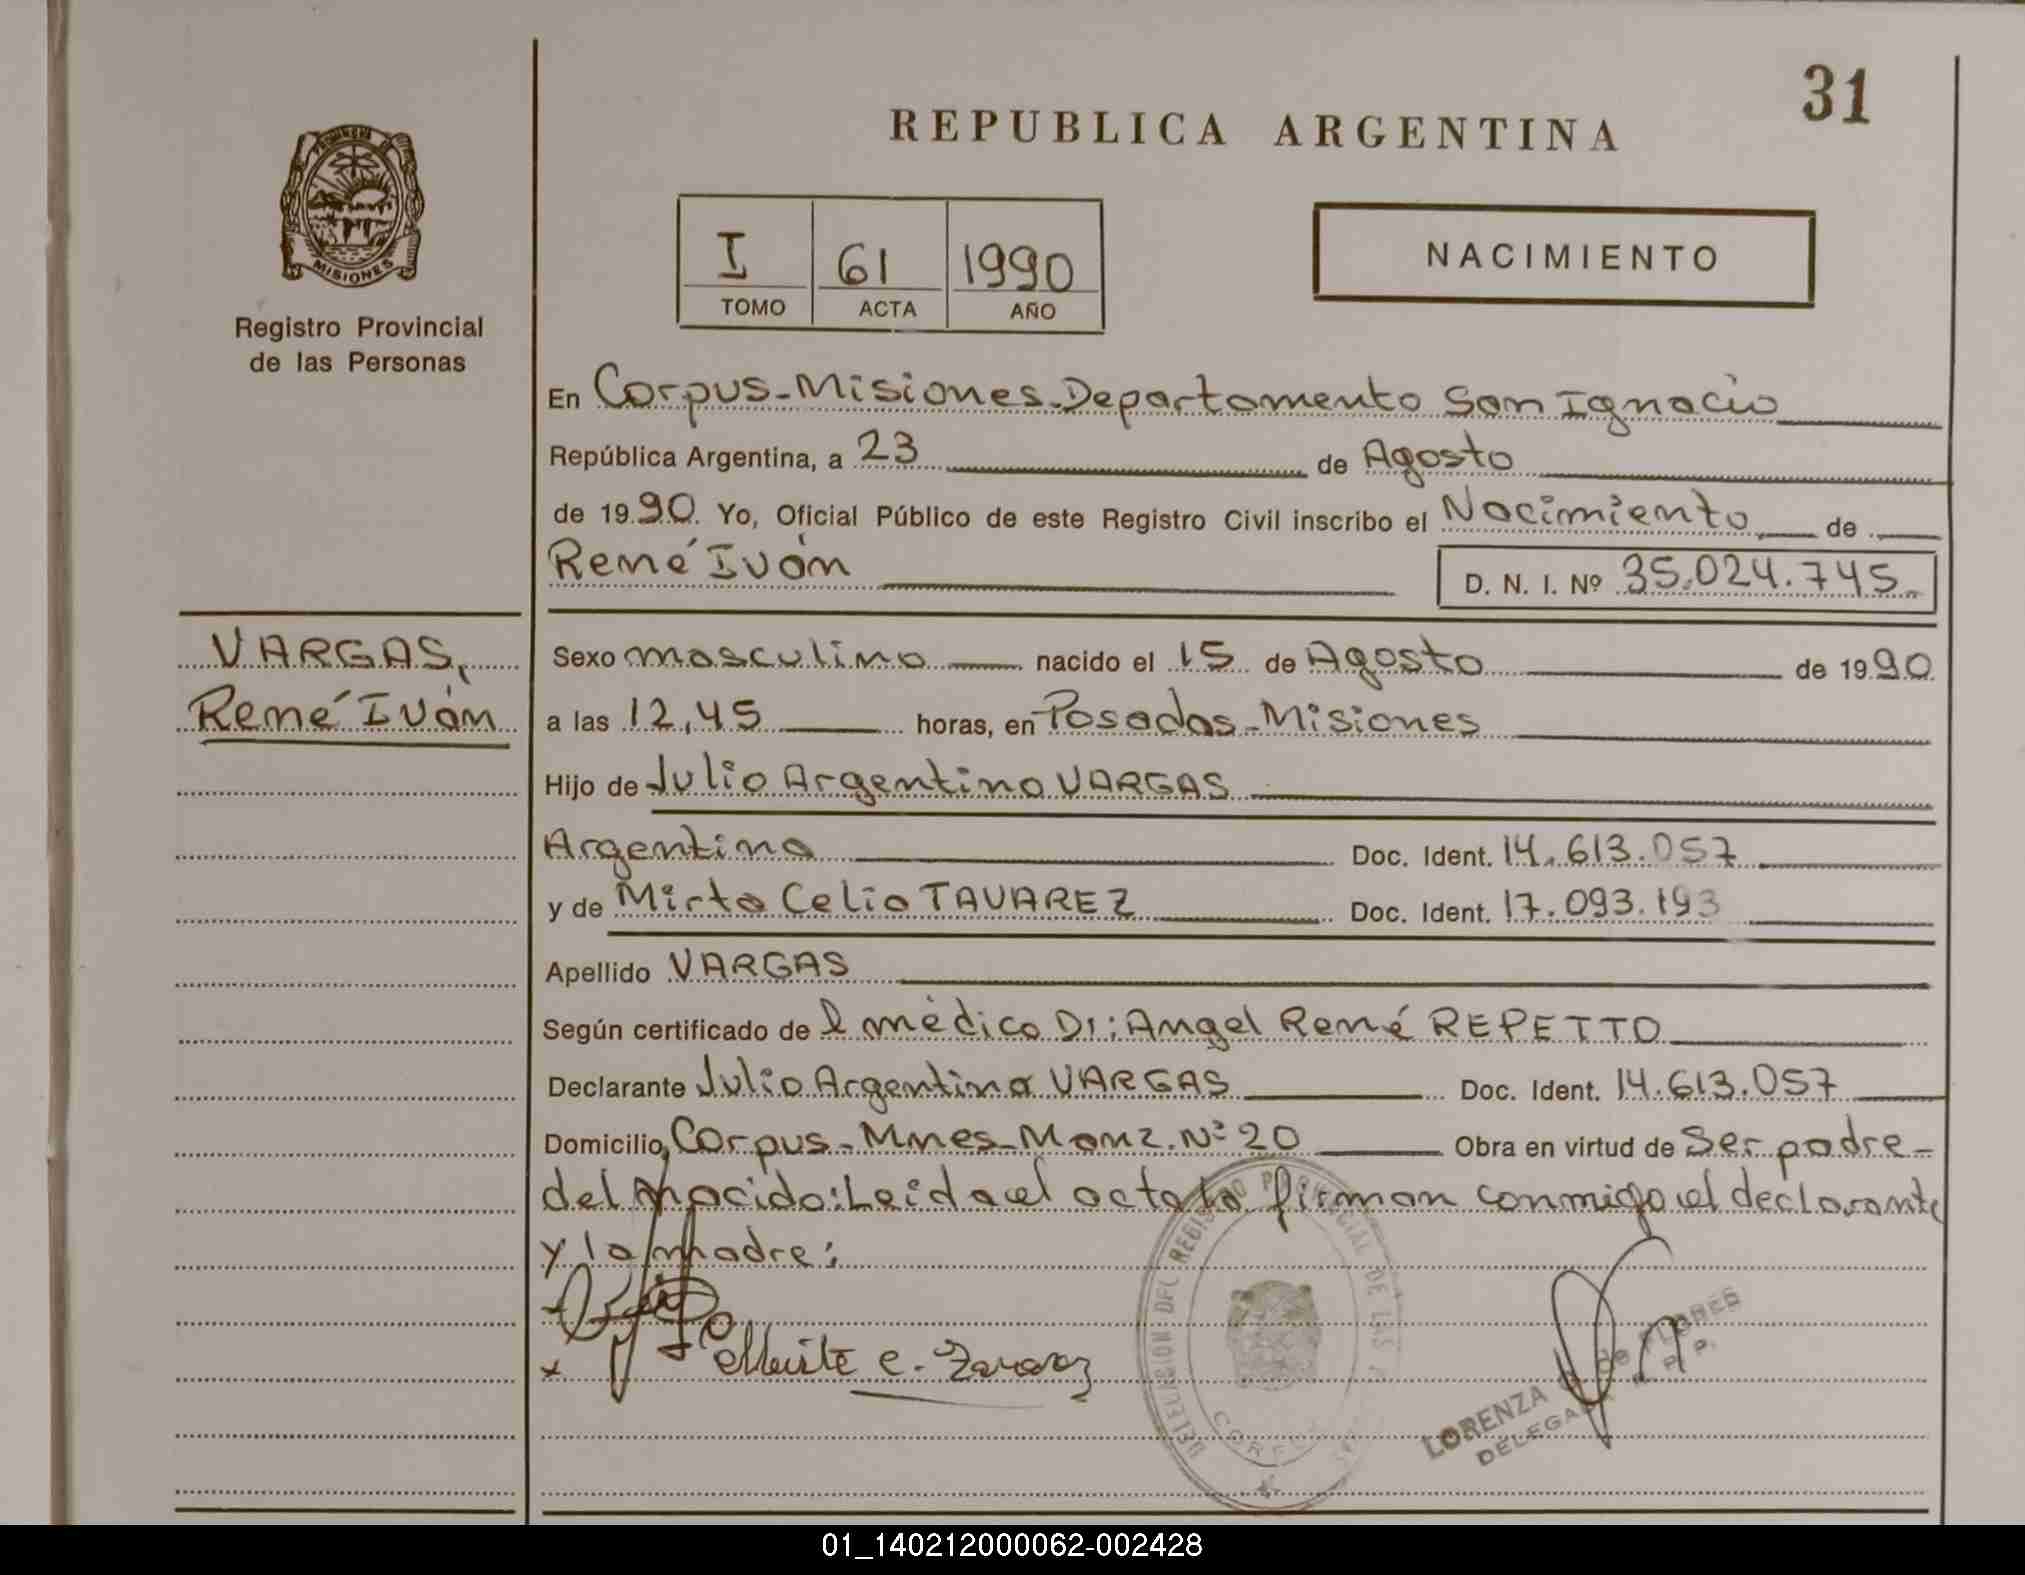 31
REPUBLICA ARGENTINA
MISIONES
Registro Provincial
de las Personas
I 61 1990
TOMO ACTA AÑO
NACIMIENTO
En Corpus-Misiones-Departamento San Ignacio
República Argentina, a 23 de Agosto
de 1990. Yo, Oficial Público de este Registro Civil inscribo el Nacimiento de
René Iván
D. N. I. Nº 35.024.745.
VARGAS,
René Iván
Sexo masculino nacido el 15 de Agosto de 1990
a las 12,45 horas, en Posadas-Misiones
Hijo de Julio Argentino VARGAS
Argentina Doc. Ident. 14.613.057
y de Mirta Celia TAVAREZ Doc. Ident. 17.093.193
Apellido VARGAS
Según certificado de l médico Dr: Angel René REPETTO
Declarante Julio Argentino VARGAS Doc. Ident. 14.613.057
Domicilio, Corpus-Mnes-Manz. Nº 20 Obra en virtud de Ser padre-
del nacido: Leida el acta la firman conmigo el declarante
y la madre:
DELEGACION DEL REGISTRO PROVINCIAL DE LAS
CORPUS
LORENZA de FLORES
DELEGADA R. P. P.
01_140212000062-002428